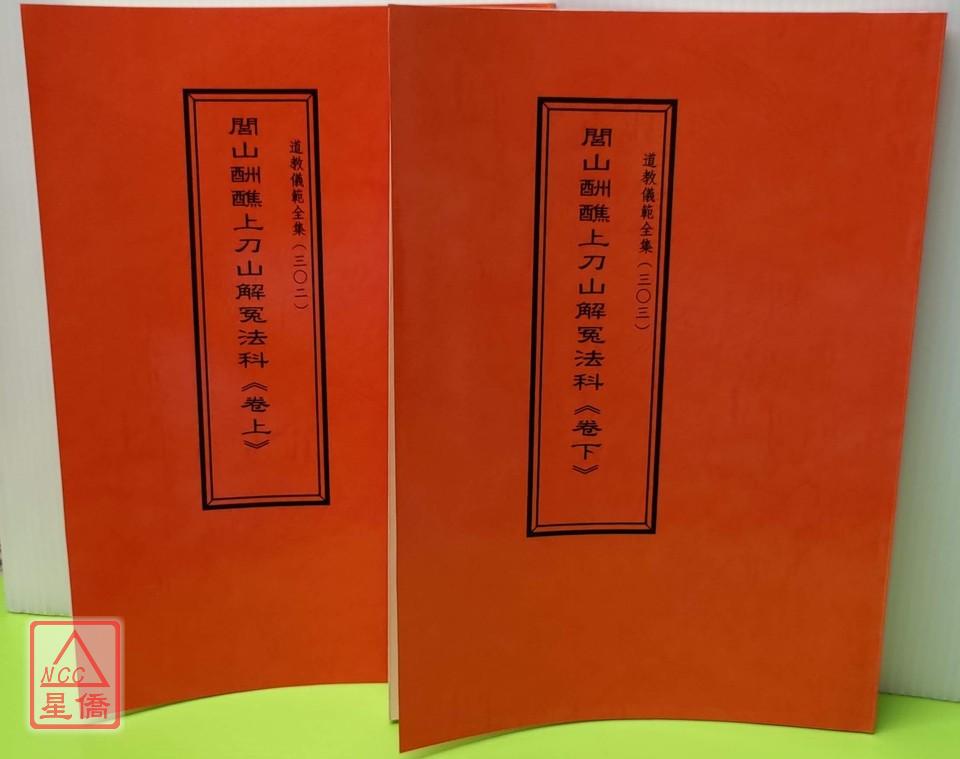 道教儀範全集（三〇二）
閭山酬醮上刀山解冤法科《卷上》
道教儀範全集（三〇三）
閭山酬醮上刀山解冤法科《卷下》
NCC
星僑